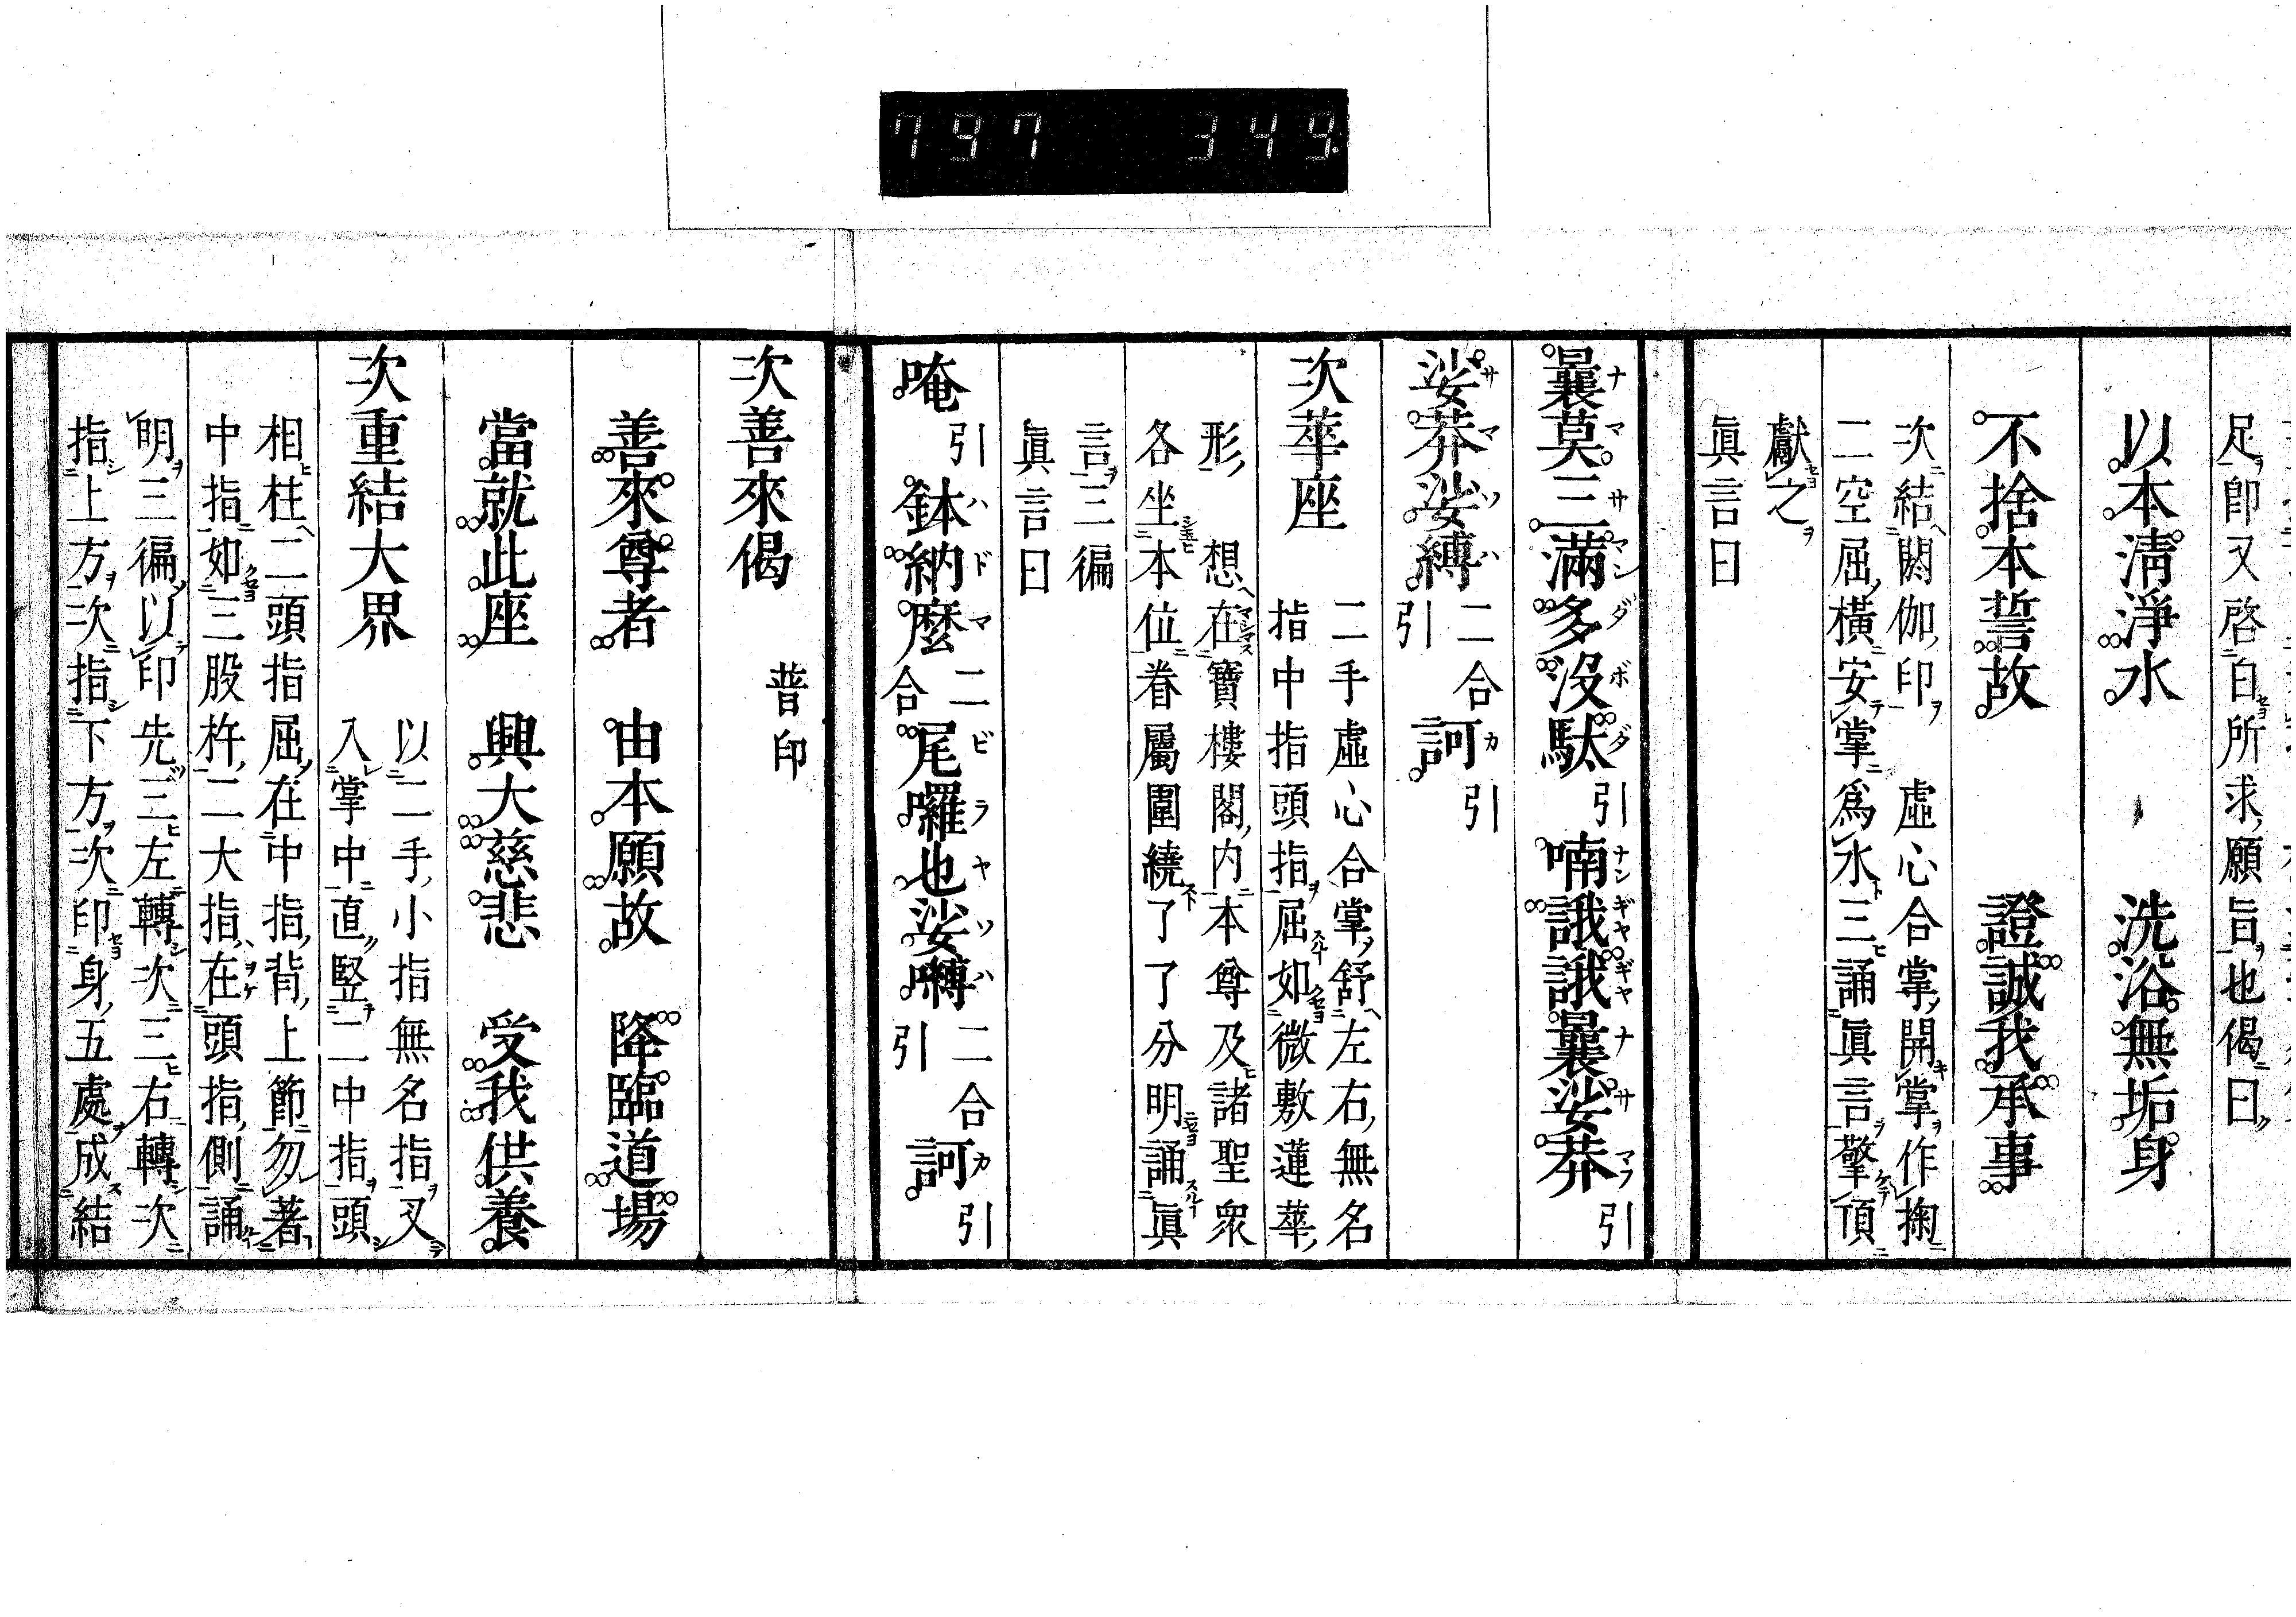 797 349.
足即又啓白所求願旨也偈曰
以本淸淨水 洗浴無垢身
不捨本誓故 證誠我承事
次結閼伽印 虛心合掌開掌作掬
二空屈橫安掌爲水三誦眞言擎頂
獻之
眞言曰
曩莫三滿多沒駄引喃誐誐曩娑莽引
娑莽娑縛二合引訶引
次華座 二手虛心合掌舒左右無名
指中指頭指屈如微敷蓮華
形 想在寶樓閣內本尊及諸聖衆
各坐本位眷屬圍繞了了分明誦眞
言三徧
眞言曰
唵引鉢納麼二合尾囉也娑嚩二合引訶引
次善來偈 普印
善來尊者 由本願故 降臨道場
當就此座 興大慈悲 受我供養
次重結大界 以二手小指無名指叉
入掌中直竪二中指頭
相柱二頭指屈在中指背上節勿著
中指如三股杵二大指在頭指側誦
明三徧以印先三左轉次三右轉次
指上方次指下方次印身五處成結